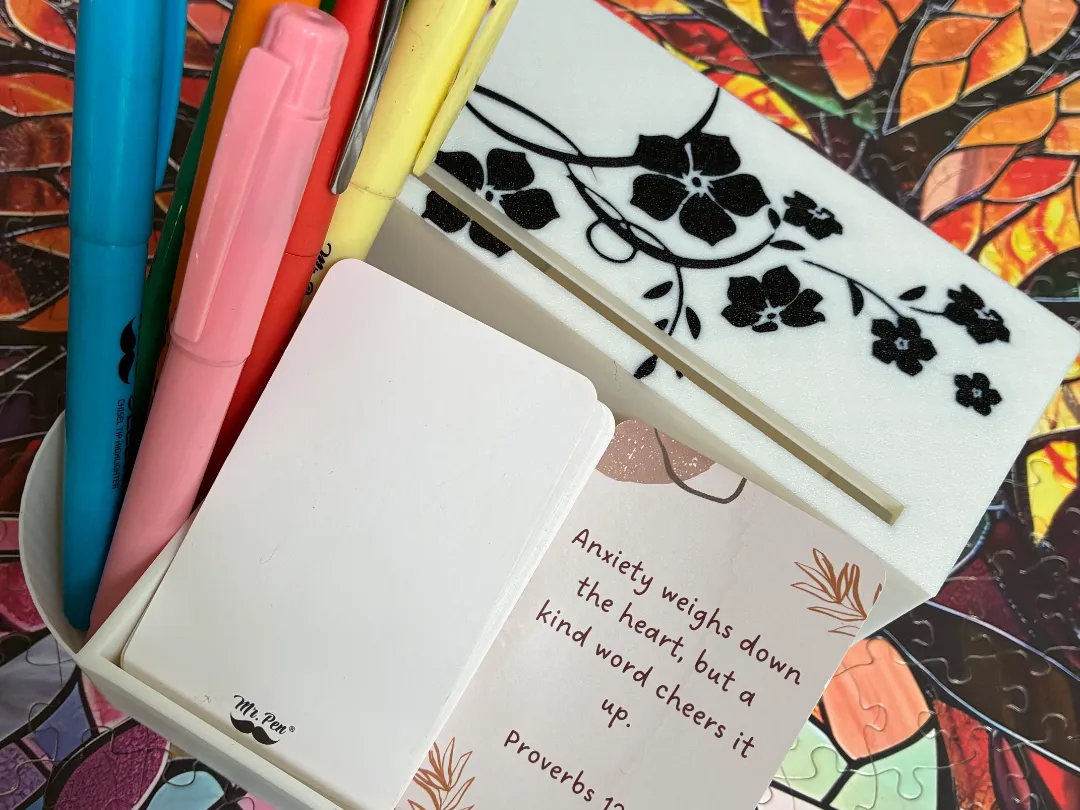 CHISEL TIP HIGHLIGHTER
Mr.
Mr. Pen®
Anxiety weighs down
the heart, but a
kind word cheers it
up.
Proverbs